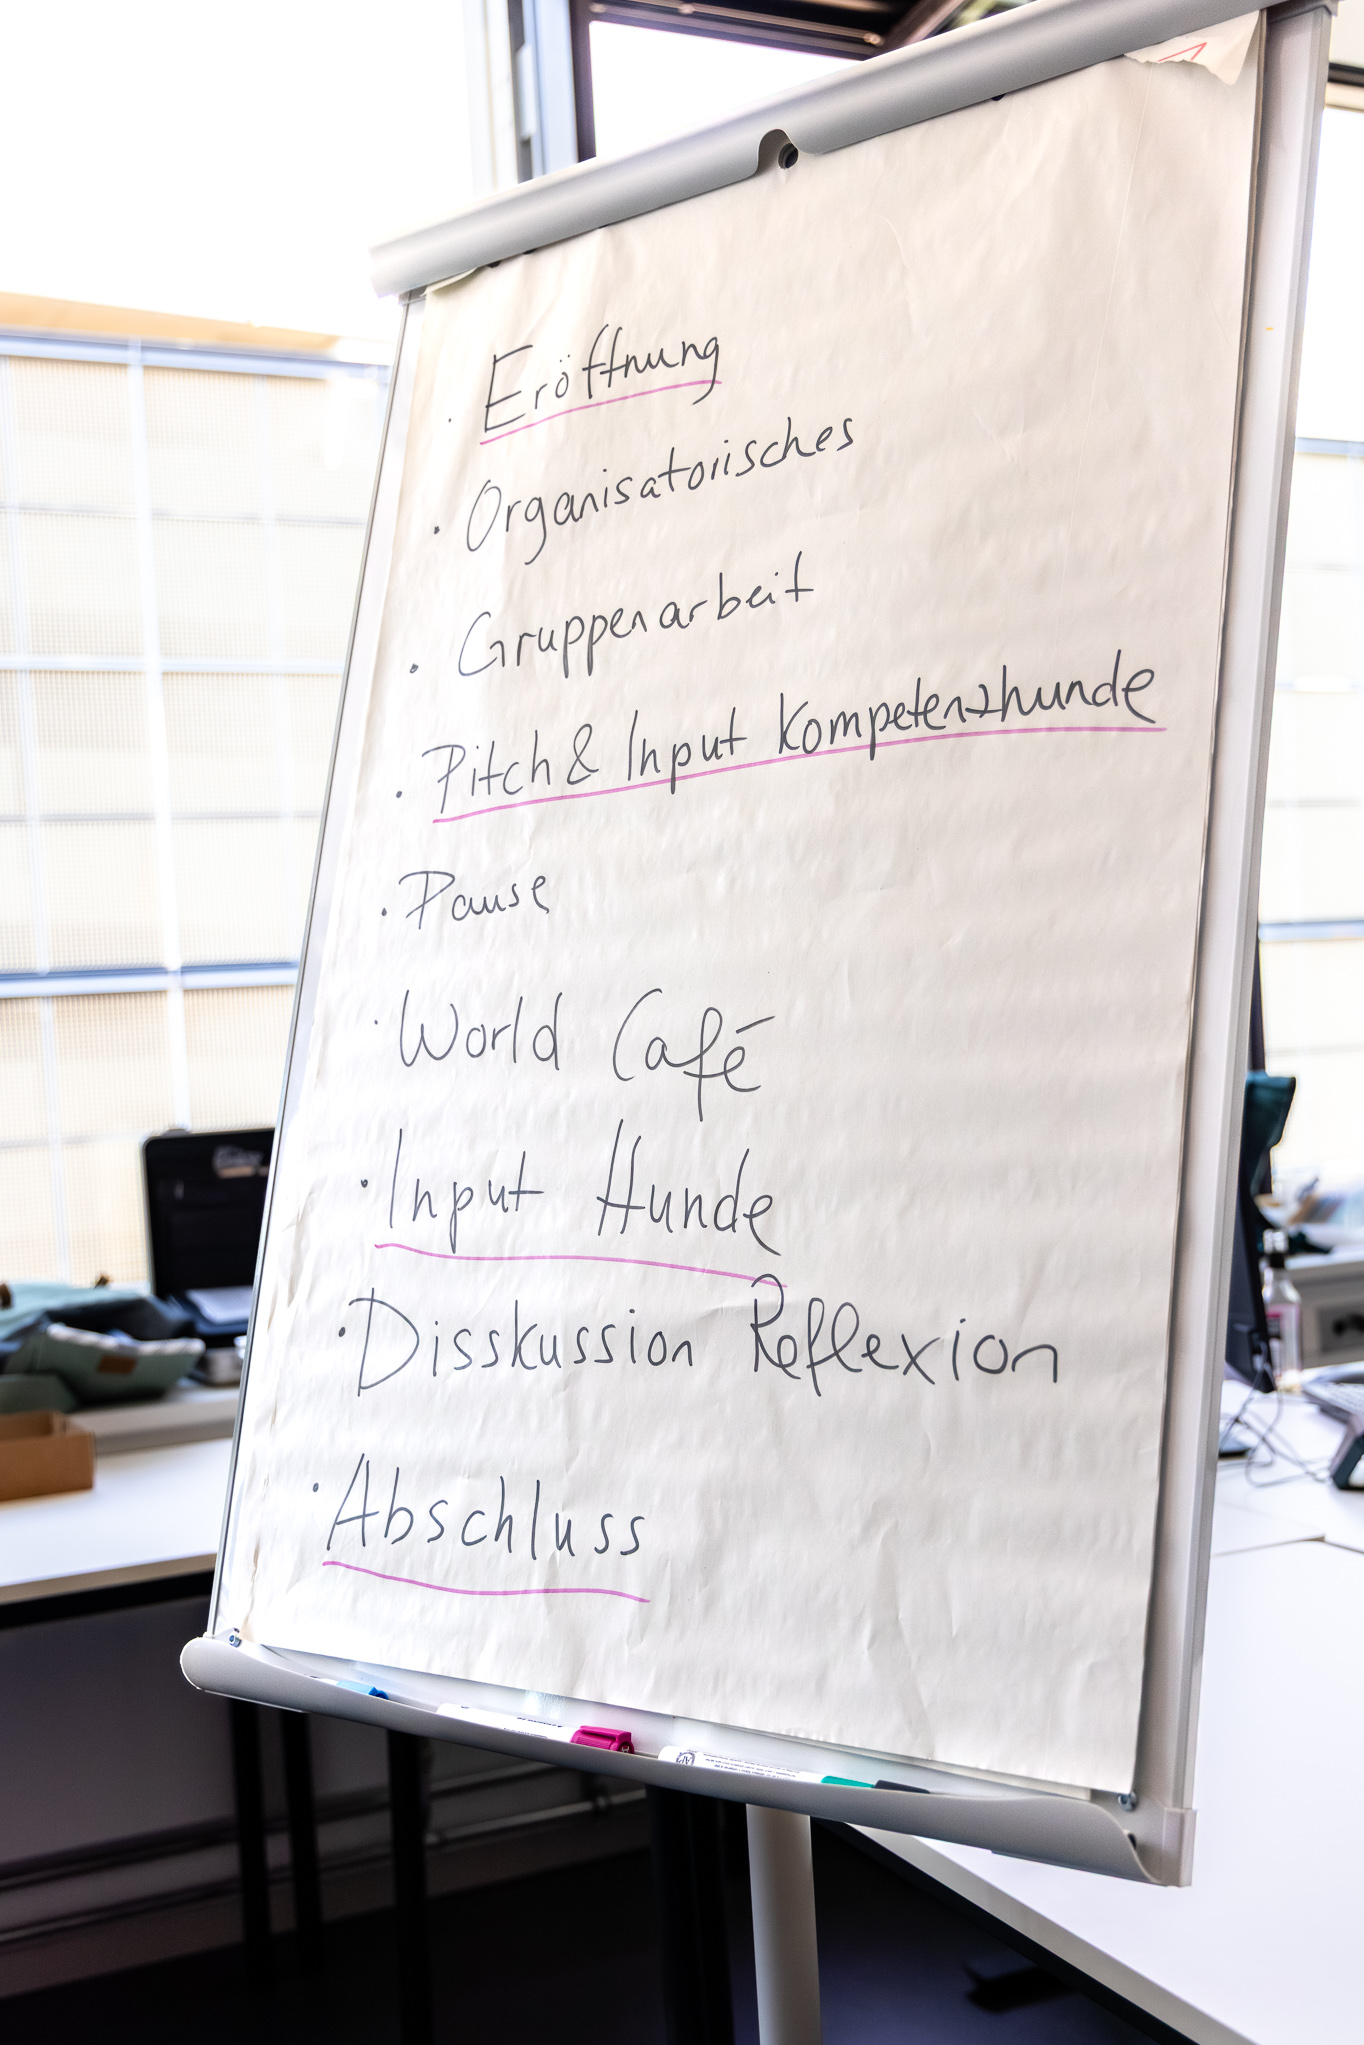 · Eröffnung
· Organisatorisches
· Gruppenarbeit
· Pitch & Input Kompetenzhunde
· Pause
· World Café
· Input Hunde
· Disskussion Reflexion
· Abschluss